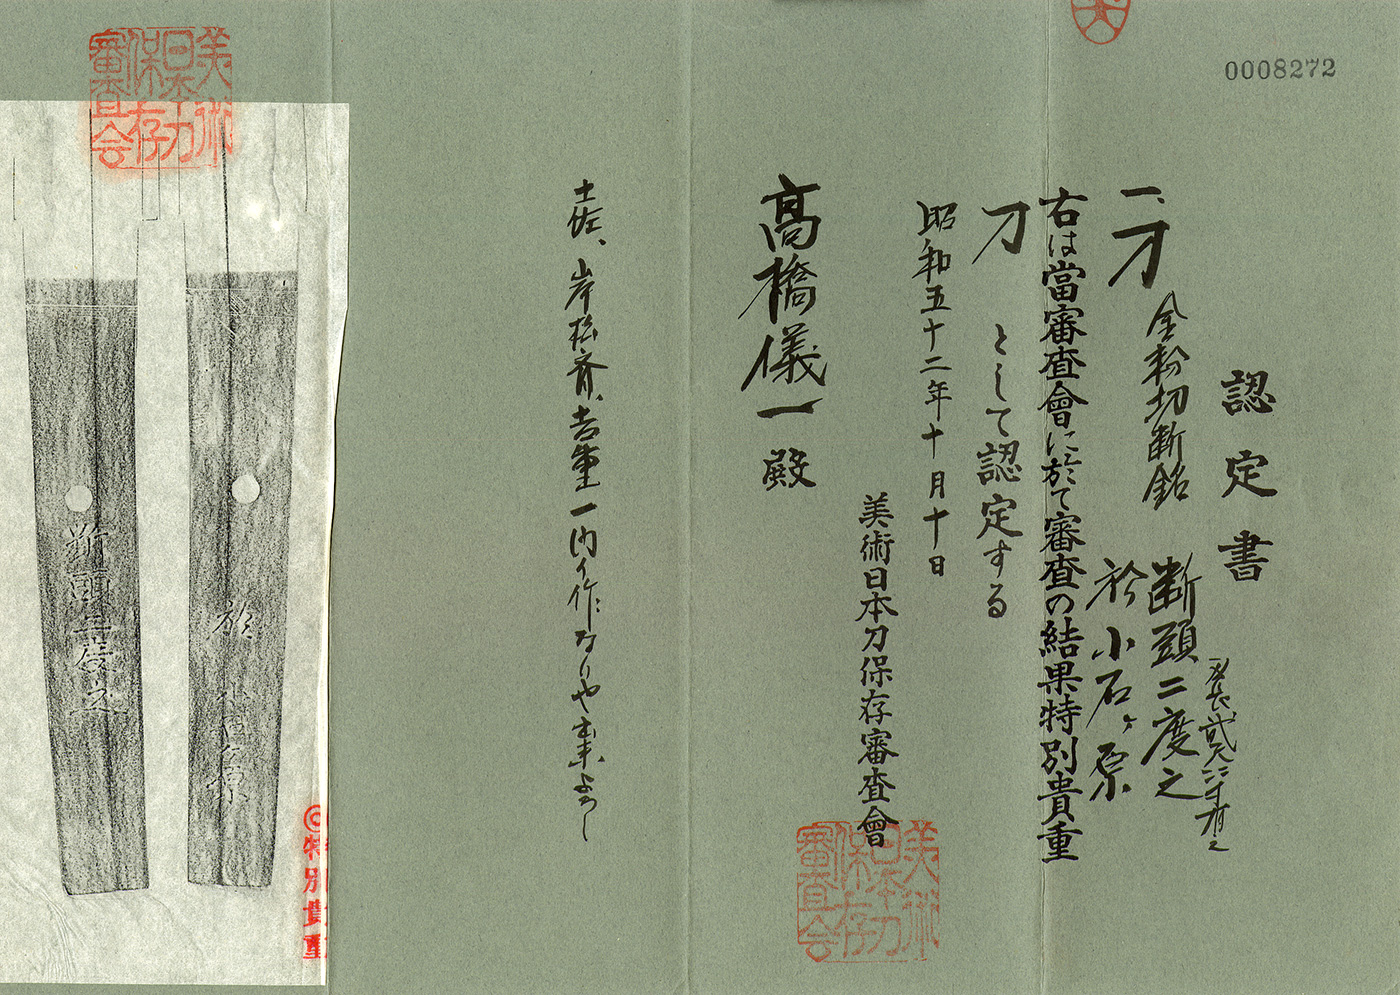 0008272
認定書
一、刀
金粉切断銘
断頭二度之
於小石ヶ原
右は當審査會に於て審査の結果特別貴重
刀として認定する
昭和五十二年十月十日
美術日本刀保存審査會
高橋儀一殿
美術日本刀保存審査会
土佐、岸松斉、吉重一内
美術日本刀保存審査会
於小石ヶ原
断頭二度之
特別貴重